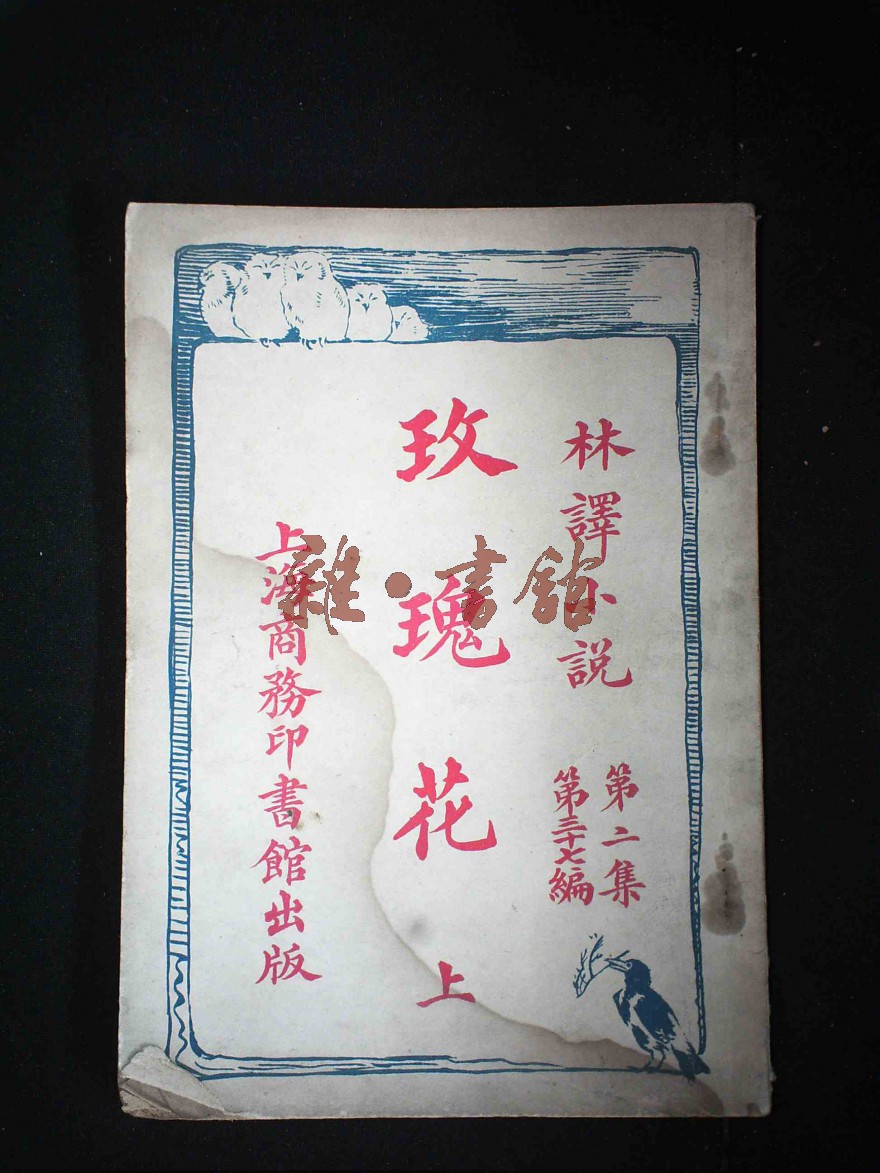 林譯小説
第二集
第三十七編
玫瑰花
上
上海商務印書館出版
雜·書館